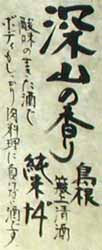 深山の香り
島根
簸上清酒
純米
酸味のきいた酒で
ボディもしっかり肉料理に負けない酒です